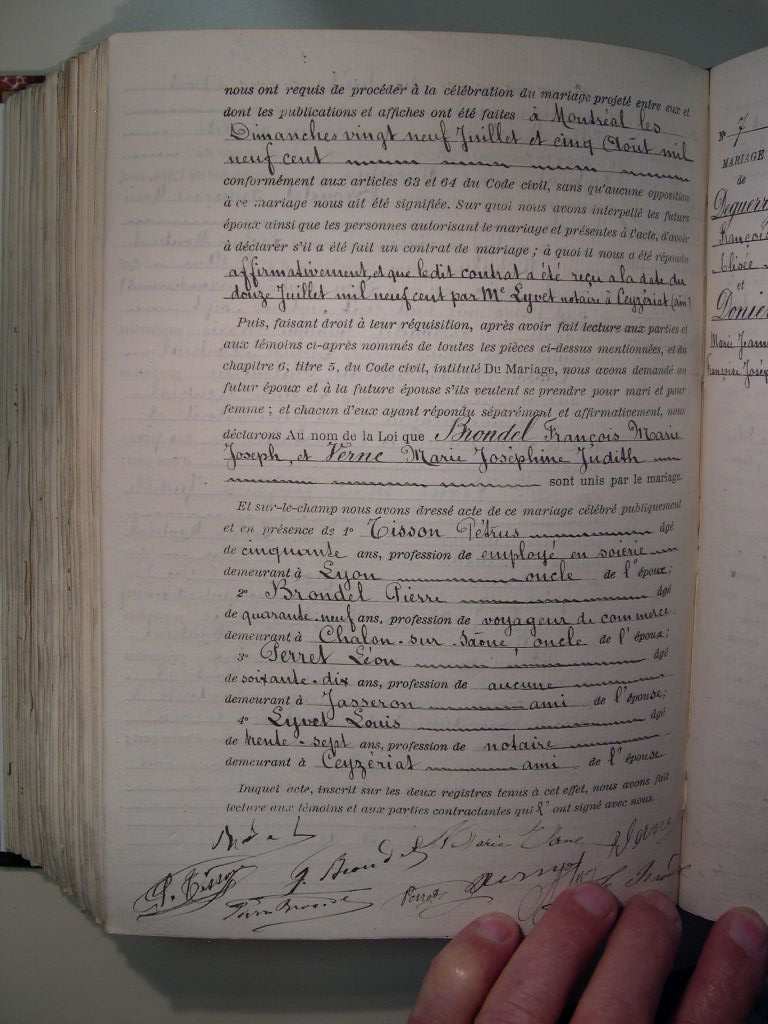 nous ont requis de procéder à la célébration du mariage projeté entre eux et
dont les publications et affiches ont été faites à Montréal les
Dimanches vingt neuf Juillet et cinq Août mil
neuf cent
conformément aux articles 63 et 64 du Code civil, sans qu'aucune opposition
à ce mariage nous ait été signifiée. Sur quoi nous avons interpellé les futurs
époux ainsi que les personnes autorisant le mariage et présentes à l'acte, d'avoir
à déclarer s'il a été fait un contrat de mariage ; à quoi il nous a été répondu
affirmativement, et que ledit contrat a été reçu a la date du
douze Juillet mil neuf cent par Me Lyvet notaire à Ceyzériat (Ain)
Puis, faisant droit à leur réquisition, après avoir fait lecture aux parties et
aux témoins ci-après nommés de toutes les pièces ci-dessus mentionnées, et du
chapitre 6, titre 5, du Code civil, intitulé Du Mariage, nous avons demandé au
futur époux et à la future épouse s'ils veulent se prendre pour mari et pour
femme ; et chacun d'eux ayant répondu séparément et affirmativement, nous
déclarons Au nom de la Loi que Brondel François Marie
Joseph, et Verne Marie Joséphine Judith
sont unis par le mariage.
Et sur-le-champ nous avons dressé acte de ce mariage célébré publiquement
et en présence de 1° Tisson Pétrus âgé
de cinquante ans, profession de employé en soierie
demeurant à Lyon oncle de l'époux ;
2° Brondel Pierre âgé
de quarante-neuf ans, profession de voyageur de commerce
demeurant à Chalon-sur-Saône, oncle de l'époux ;
3° Perret Léon âgé
de soixante-dix ans, profession de aucune
demeurant à Jasseron ami de l'épouse ;
4° Lyvet Louis âgé
de trente-sept ans, profession de notaire
demeurant à Ceyzériat ami de l'épouse
Inquel acte, inscrit sur les deux registres tenus à cet effet, nous avons fait
lecture aux témoins et aux parties contractantes qui l'ont signé avec nous.
P. Tisson
J. Brondel
Pierre Brondel
Perret
N° 7
MARIAGE
de
François
Elisée
et
Marie Jeanne